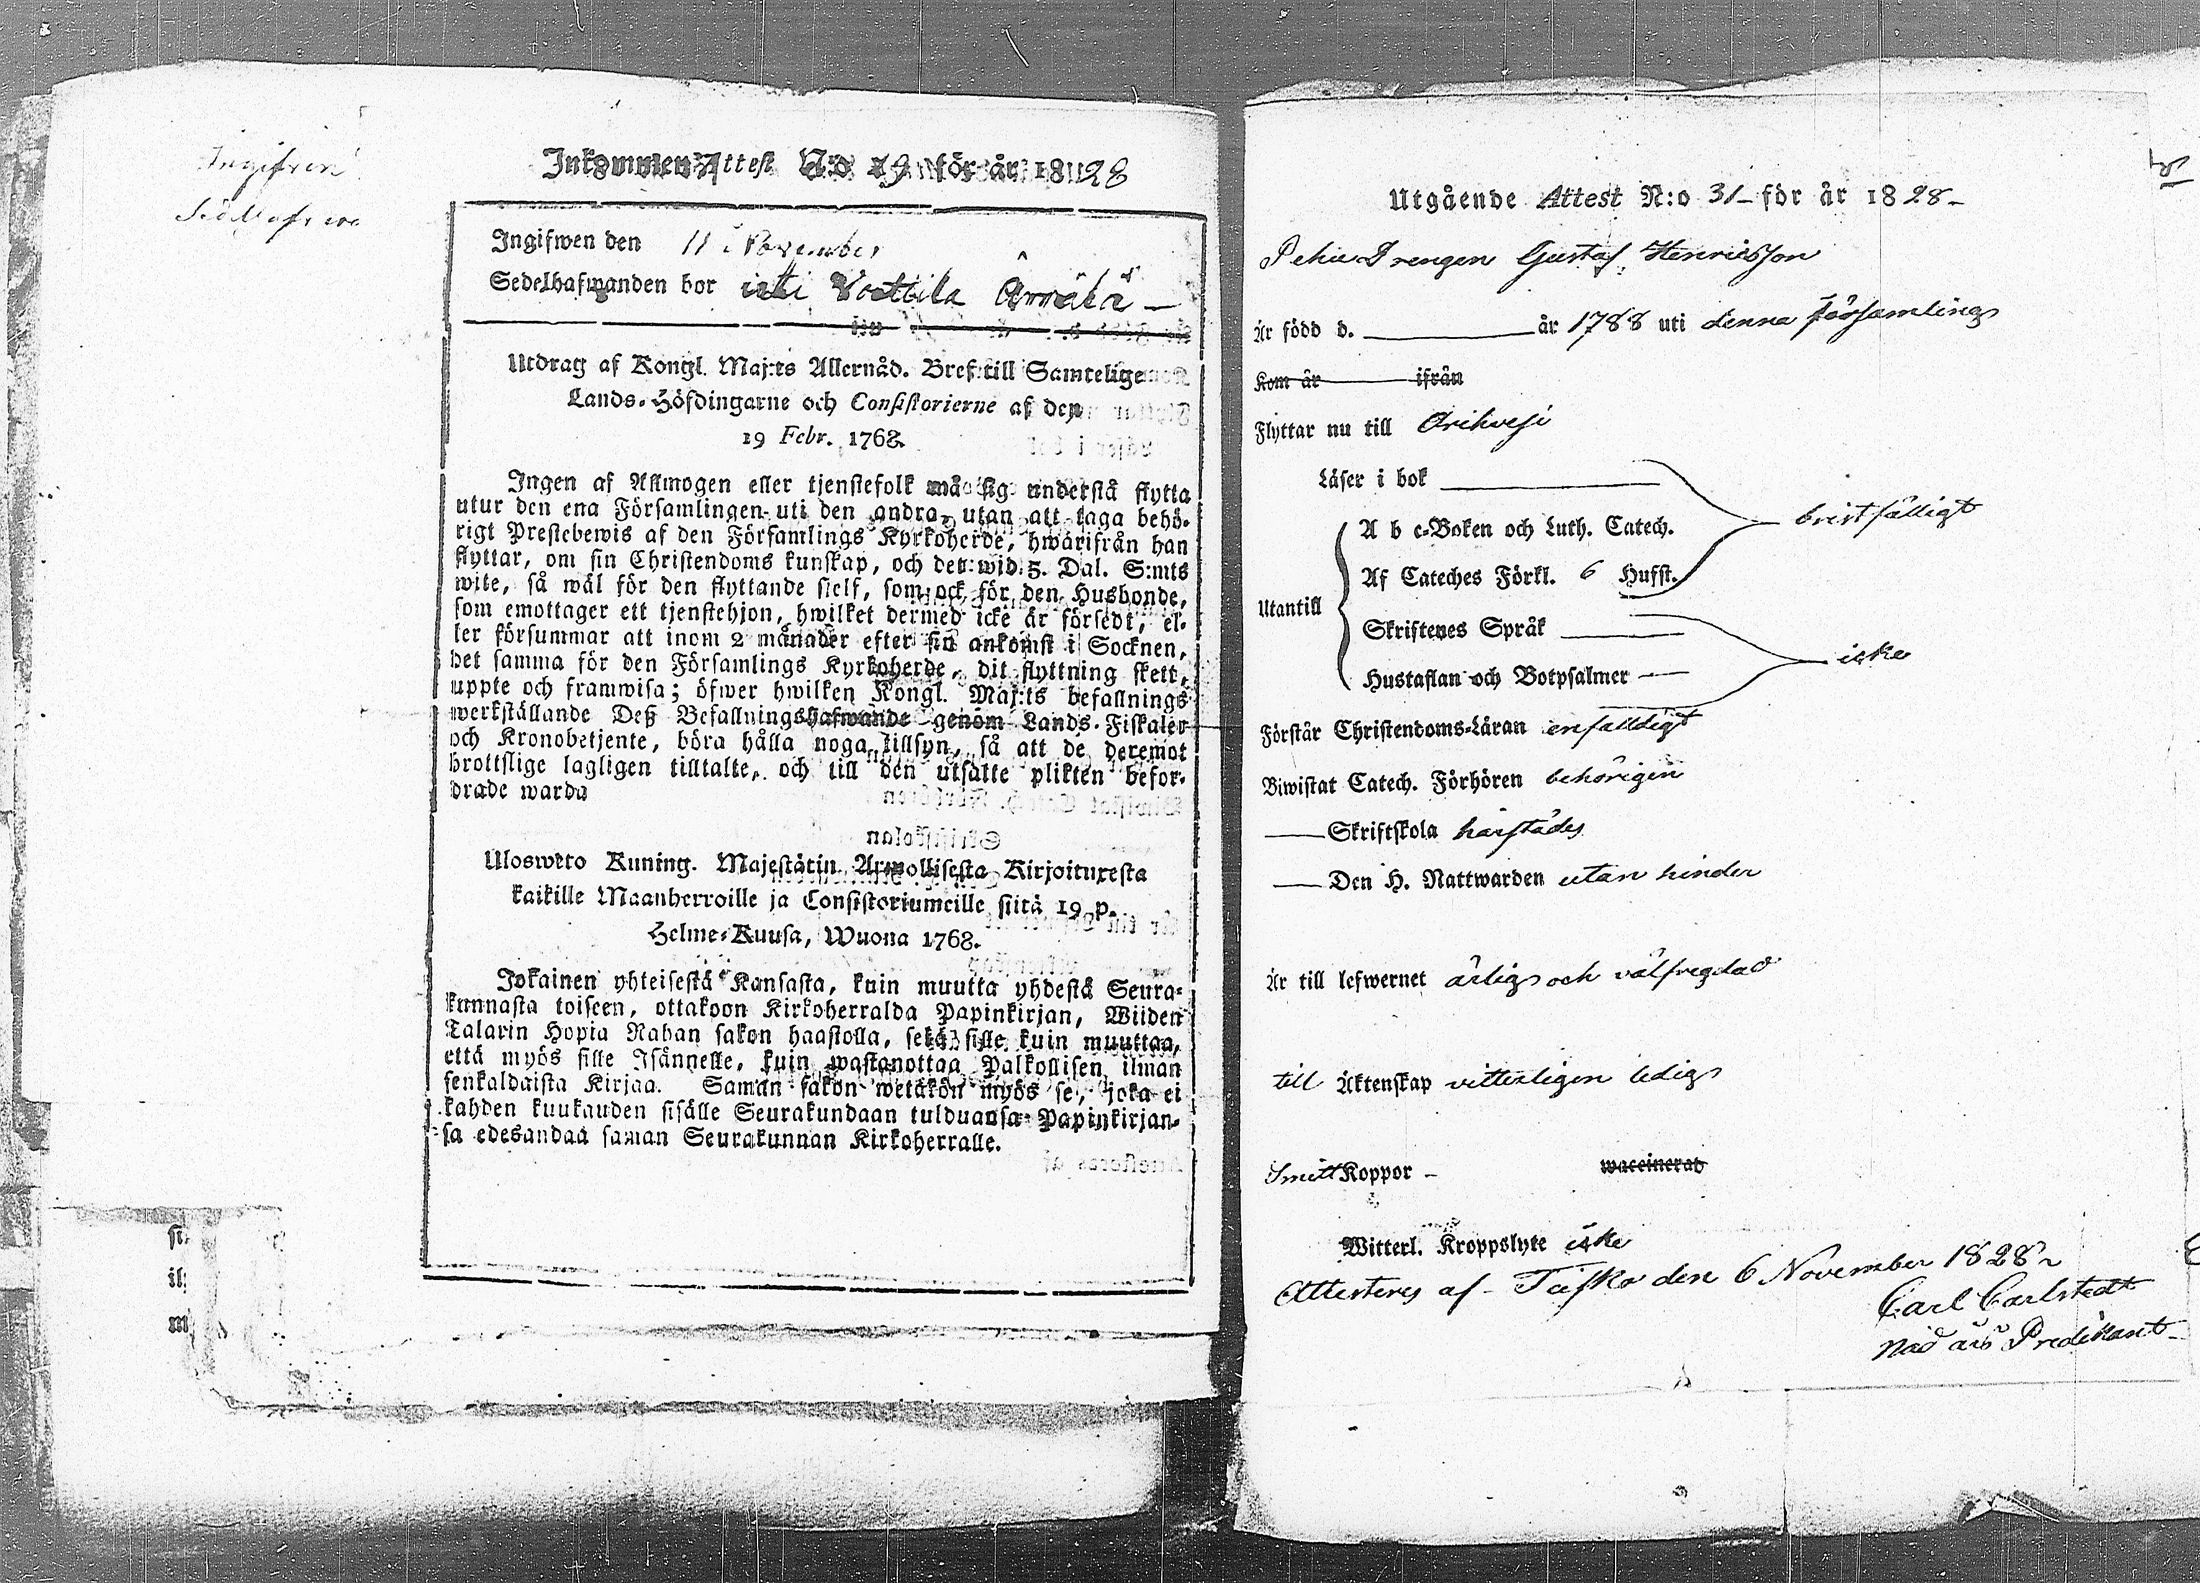 Ingifven
Inkommen Attest N:o 19 för år 1828
Ingifwen den 11 November
Sedelhafwanden bor uti Voittila
Utdrag af Kongl. Maj:ts Allernåd. Bref till Samtelige
Lands-Höfdingarne och Consistorierne af den
19 Febr. 1768.
Ingen af Allmogen eller tjenstefolk må sig understå flytta
utur den ena Församlingen uti den andra, utan att taga behö-
rigt Prestebewis af den Församlings Kyrkoherde, hwarifrån han
flyttar, om sin Christendoms kunskap, och det wid 5. Dal. S:mts
wite, så wäl för den flyttande sielf, som ock för den Husbonde,
som emottager ett tjenstehjon, hwilket dermed icke är försedt, el-
ler försummar att inom 2 månader efter sin ankomst i Socknen,
det samma för den Församlings Kyrkoherde, dit flyttning skett,
uppte och framwisa; öfwer hwilken Kongl. Maj:ts befallnings
werkställande Deß Befallningshafwande genom Lands-Fiskaler
och Kronobetjente, böra hålla noga tillsyn, så att de deremot
brottslige lagligen tilltalte, och till den utsatte plikten befor-
drade warda
Uloswèto Kuning. Majestätin Armollisesta Kirjoituxesta
kaikille Maanherroille ja Consistoriumeille siitä 19 p.
Helme-Kuusa, Wuona 1768.
Jokainen yhteisestä Kansasta, kuin muutta yhdestä Seura-
kunnasta toiseen, ottakoon Kirkoherralda Papinkirjan, Wiiden
Talarin Hopia Rahan sakon haastolla, sekä sille kuin muuttaa,
että myös sille Isännelle, kuin wastanottaa Palkollisen ilman
senkaldaista Kirjaa. Saman sakon wetäkön myös se, joka ei
kahden kuukauden sisälle Seurakundaan tulduansa Papinkirjan-
sa edesandaa saman Seurakunnan Kirkoherralle.
Utgående Attest N:o 31 för år 1828
Drengen Gustaf Henricsson
Är född d. år 1788 uti denna församling
Kom år ifrån
Flyttar nu till Orihvesi
Läser i bok
bristfälligt
A b c-Boken och Luth. Catech.
Af Cateches Förkl. 6 Hufst.
Utantill
Skriftenes Språk
icke
Hustaflan och Botpsalmer
Förstår Christendoms-Läran enfalldigt
Biwistat Catech. Förhören behörigen
Skriftskola härstädes
Den H. Nattwarden utan hinder
Är till lefwernet ärlig och välfregdad
till Äktenskap vitterligen ledig
Koppor waccinerad
Witterl. Kroppslyte icke
Attesteres af den 6 November 1828
Carl Carlstedt
Nåd års Predikant